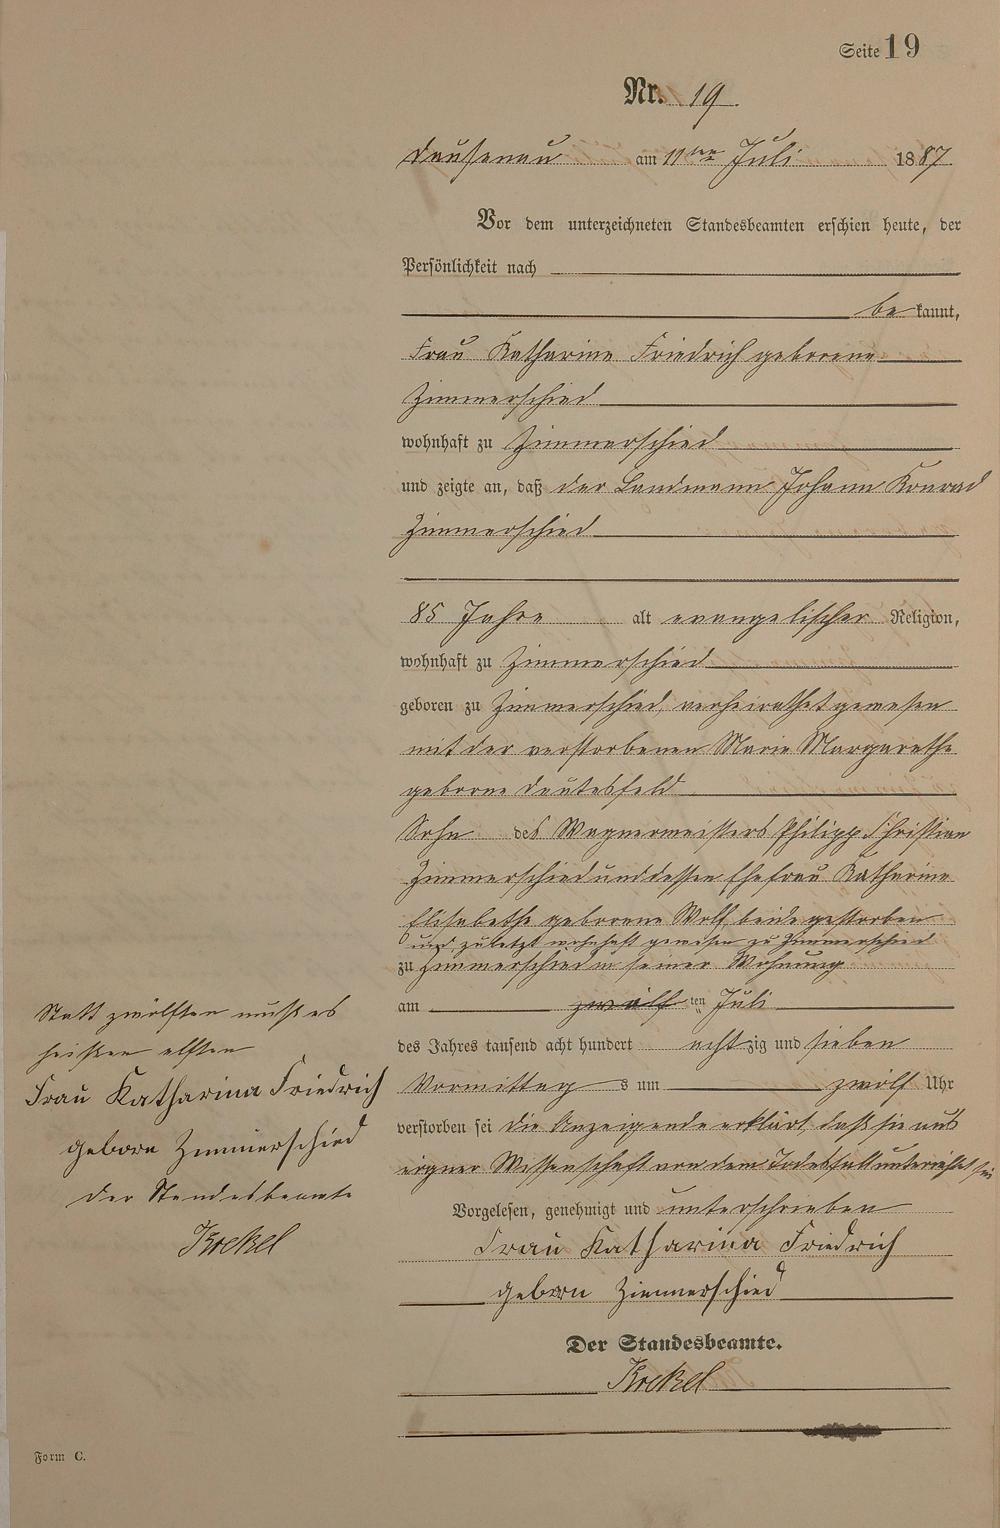 Seite 19
Nr. 19.
Dausenau am 11ten Juli 1887
Vor dem unterzeichneten Standesbeamten erschien heute, der
Persönlichkeit nach
be kannt,
Frau Katharine Friedrich geborene
Zimmerschied
wohnhaft zu Zimmerschied
und zeigte an, daß der Landmann Johann Konrad
Zimmerschied
85 Jahre alt evangelischer Religion,
wohnhaft zu Zimmerschied
geboren zu Zimmerschied, verheirathet gewesen
mit der verstorbenen Marie Margarethe
geborne Dautesfeld
Sohn des Wagnermeisters Philipp Christian
Zimmerschied und dessen Ehefrau Katharine
Elisabethe geborene Wolf, beide gestorben
und zuletzt wohnhaft gewesen zu Zimmerschied
zu Zimmerschied in seiner Wohnung
am zwölf ten Juli
des Jahres tausend acht hundert achtzig und sieben
Vormittag s um zwölf Uhr
verstorben sei die Anzeigende erklärt, daß sie aus
eigner Wissenschaft von dem Todesfall unterrichtet sei
Vorgelesen, genehmigt und unterschrieben
Frau Katharina Friedrich
geborn Zimmerschied
Der Standesbeamte.
Krekel
Statt zwölften muß es
heißen elften
Frau Katharina Friedrich
geborn Zimmerschied
Der Standesbeamte
Krekel
Form C.